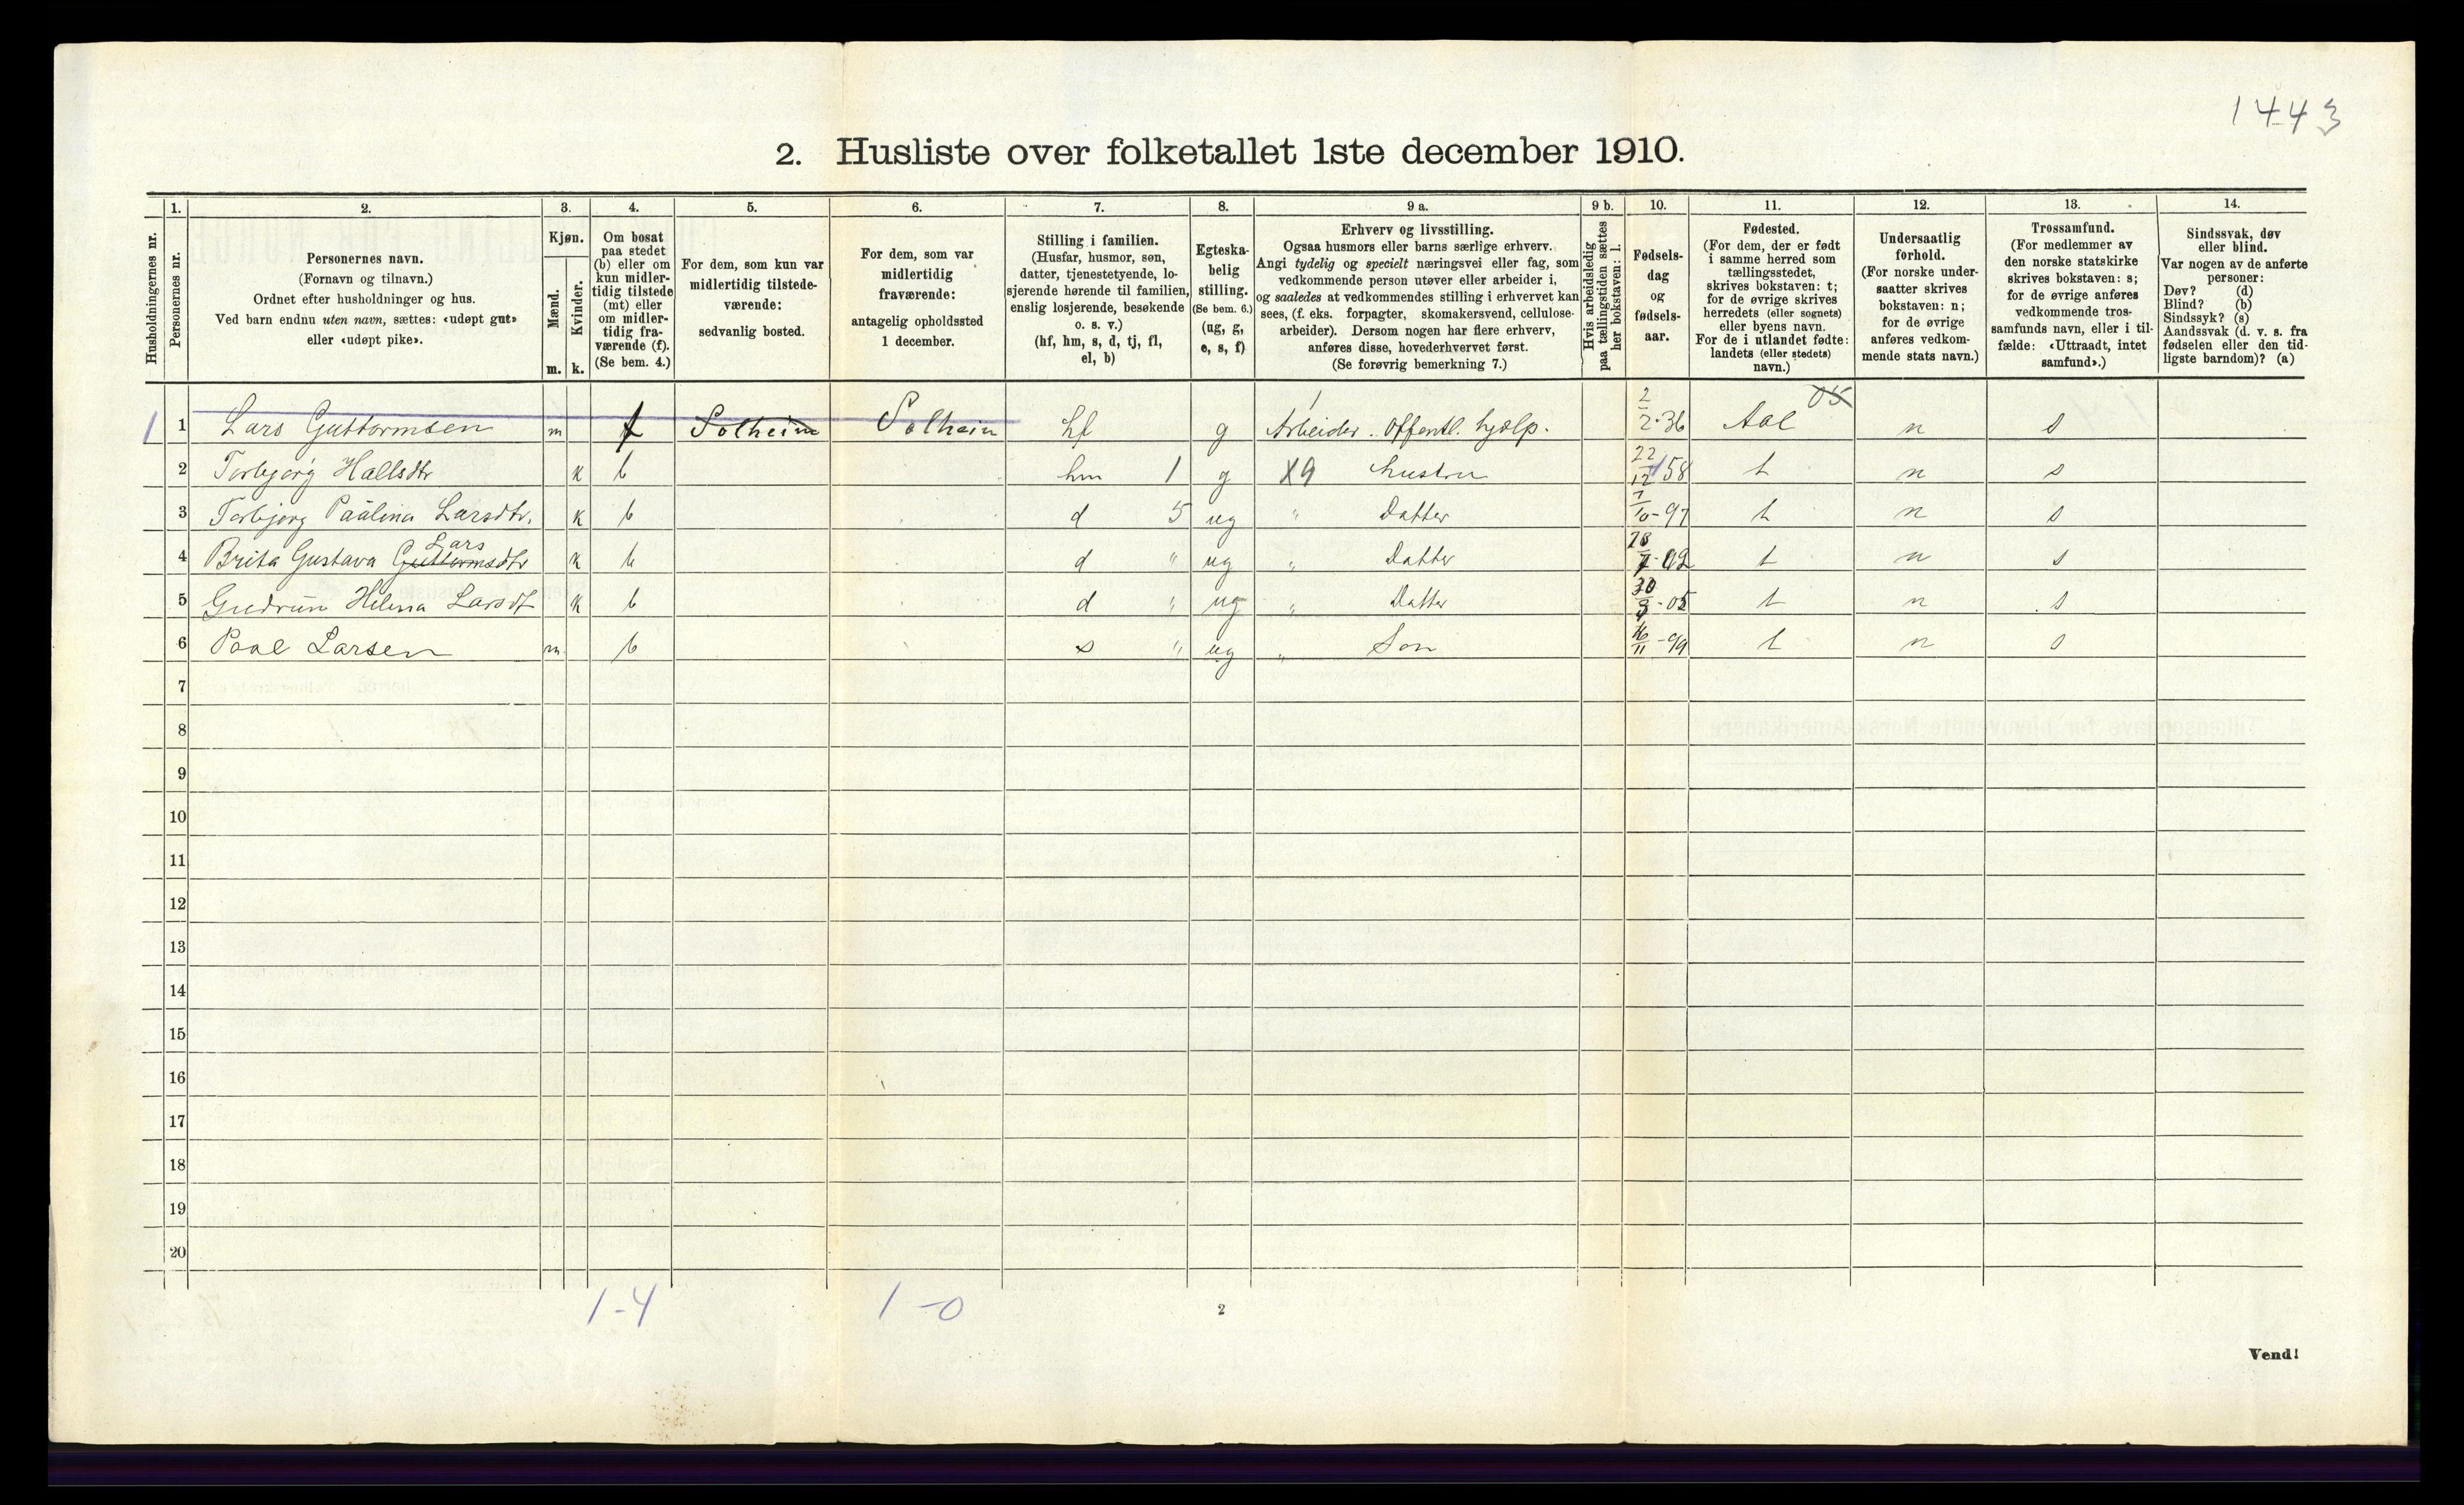 1443
2. Husliste over folketallet 1ste december 1910.
Husholdningernes nr.
1.
Personernes nr.
2.
Personernes navn.
(Fornavn og tilnavn.)
Ordnet efter husholdninger og hus.
Ved barn endnu uten navn, sættes: «udøpt gut»
eller «udøpt pike».
3.
Kjøn.
Mænd.
m.
Kvinder.
k.
4.
Om bosat
paa stedet
(b) eller om
kun midler-
tidig tilstede
(mt) eller
om midler-
tidig fra-
værende (f).
(Se bem. 4.)
5.
For dem, som kun var
midlertidig tilstede-
værende:
sedvanlig bosted.
6.
For dem, som var
midlertidig
fraværende:
antagelig opholdssted
1 december.
7.
Stilling i familien.
(Husfar, husmor, søn,
datter, tjenestetyende, lo-
sjerende hørende til familien,
enslig losjerende, besøkende
o. s. v.)
(hf, hm, s, d, tj, fl,
el, b)
8.
Egteska-
belig
stilling.
(Se bem. 6.)
(ug, g,
e, s, f)
9 a.
Erhverv og livsstilling.
Ogsaa husmors eller barns særlige erhverv.
Angi tydelig og specielt næringsvei eller fag, som
vedkommende person utøver eller arbeider i,
og saaledes at vedkommendes stilling i erhvervet kan
sees, (f. eks. forpagter, skomakersvend, cellulose-
arbeider). Dersom nogen har flere erhverv,
anføres disse, hovederhvervet først.
(Se forøvrig bemerkning 7.)
9 b.
Hvis arbeidsledig
paa tællingstiden sættes
her bokstaven: l.
10.
Fødsels-
dag
og
fødsels-
aar.
11.
Fødested.
(For dem, der er født
i samme herred som
tællingsstedet,
skrives bokstaven: t;
for de øvrige skrives
herredets (eller sognets)
eller byens navn.
For de i utlandet fødte:
landets (eller stedets)
navn.)
12.
Undersaatlig
forhold.
(For norske under-
saatter skrives
bokstaven: n;
for de øvrige
anføres vedkom-
mende stats navn.)
13.
Trossamfund.
(For medlemmer av
den norske statskirke
skrives bokstaven: s;
for de øvrige anføres
vedkommende tros-
samfunds navn, eller i til-
fælde: «Uttraadt, intet
samfund».)
14.
Sindssvak, døv
eller blind.
Var nogen av de anførte
personer:
Døv? (d)
Blind? (b)
Sindssyk? (s)
Aandssvak (d. v. s. fra
fødselen eller den tid-
ligste barndom)? (a)
1 1 Lars Guttormsen m f Solheim Solheim hf g Arbeider. Offentl. hjælp. 2/2-36 Aal 05 n s
2 Torbjørg Hallsdtr k b hm 1 g X9 hustru 22/12 58 t n s
3 Torbjørg Paalina Larsdtr. k b d 5 ug " Datter 7/10-97 t n s
4 Brita Gustava Guttormsdtr Lars k b d " ug " Datter 28/7-02 t n s
5 Gudrun Helena Larsdt k b d " ug " Datter 30/3-05 t n s
6 Paal Larsen m b s " ug " Son 16/11-99 t n s
7
8
9
10
11
12
13
14
15
16
17
18
19
20
1-4 1-0
2
Vend!